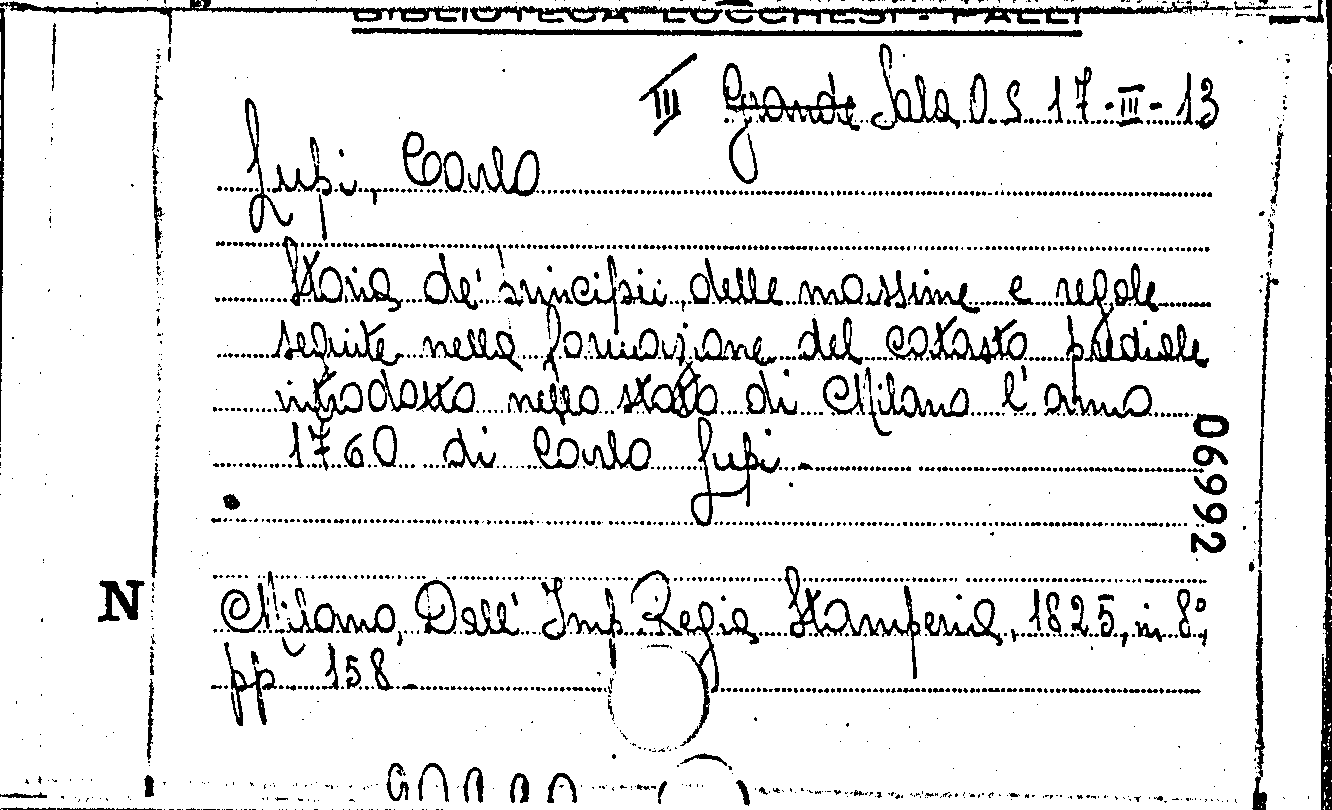 BIBLIOTECA LUCCHESI - PALLI
III Grande Sala O.S. 17-III-13
Lupi, Carlo
Storia de' principii delle massime e regole
seguite nella formazione del catasto prediale
introdotto nello stato di Milano l'anno
1760 di Carlo Lupi.
06992
N
Milano, Dall' Imp. Regia Stamperia, 1825, in 8°,
pp 158